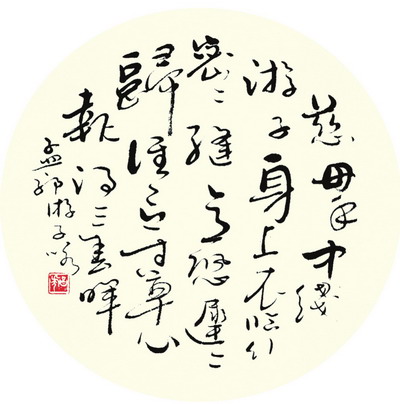 慈母手中綫
游子身上衣臨行
密〻縫意恐遲〻
歸誰言寸草心
報得三春暉
孟郊游子吟